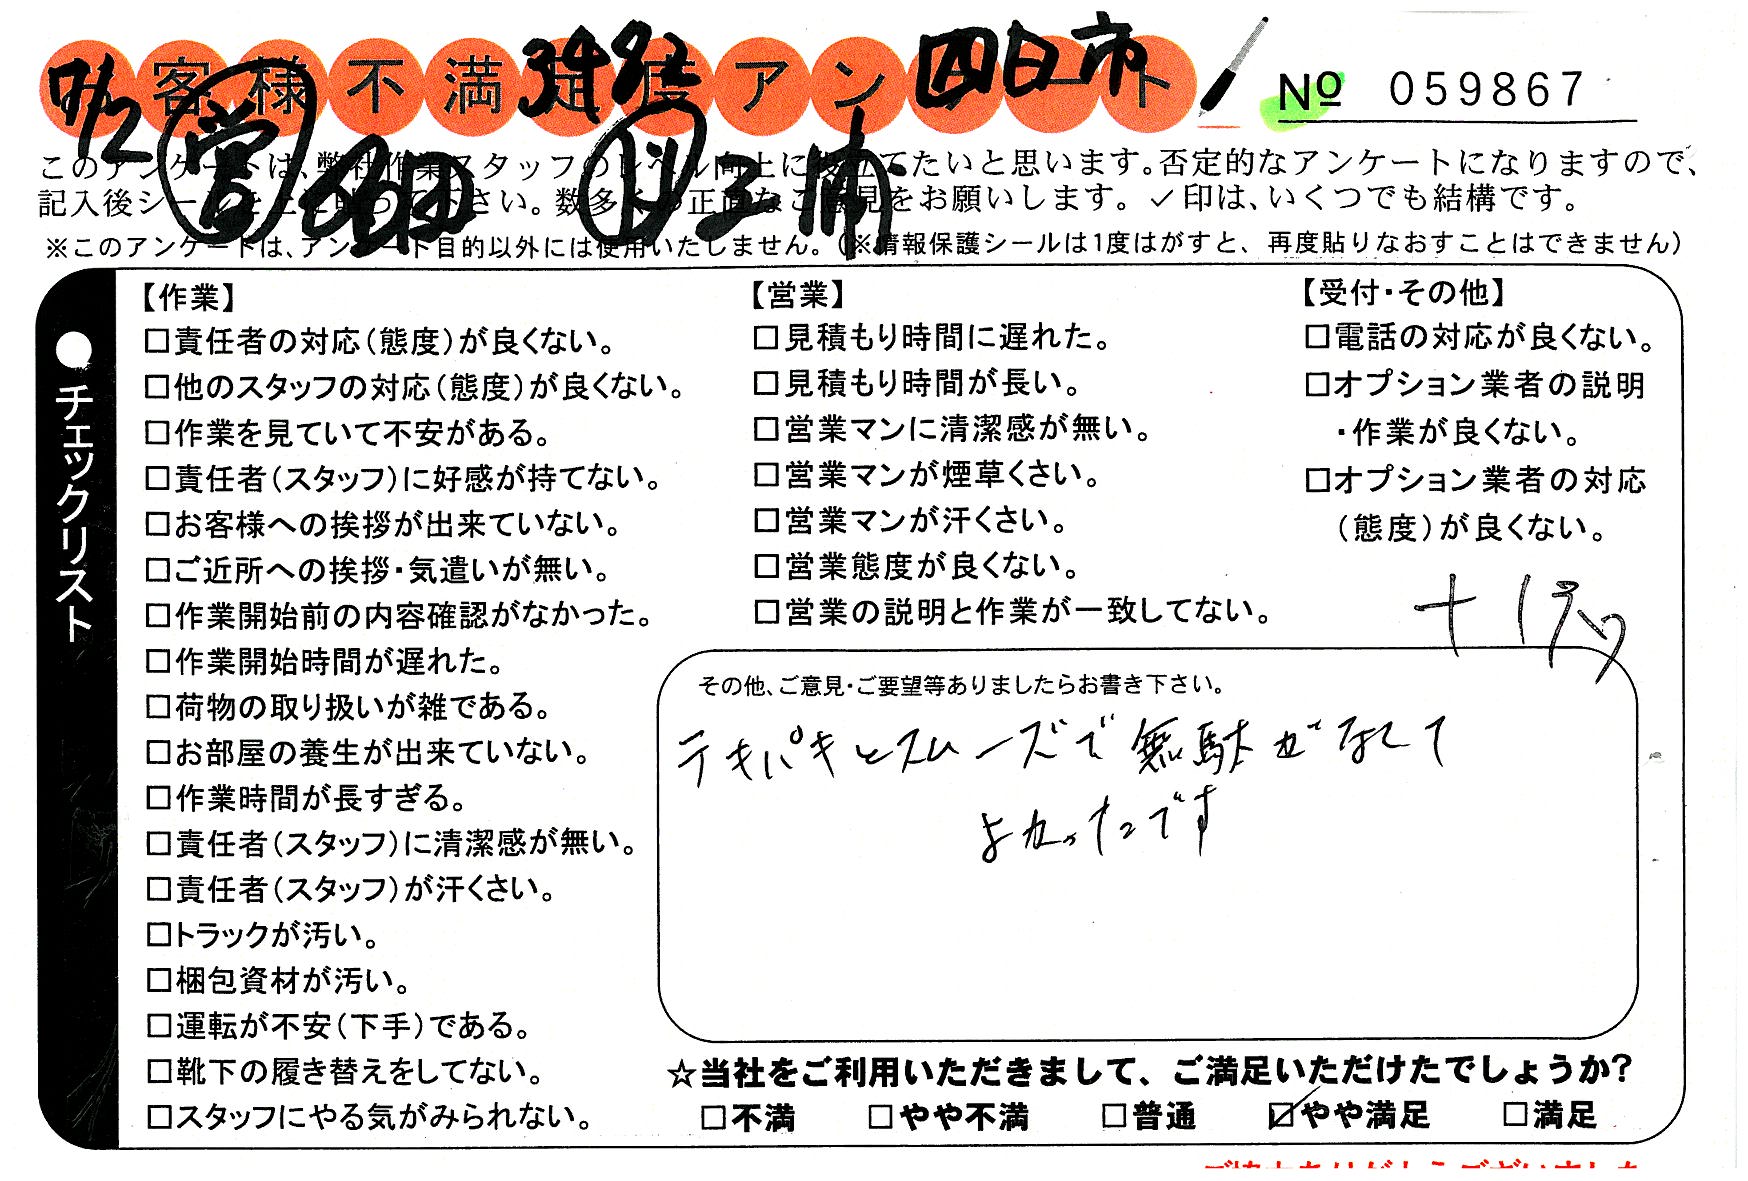 お客様不満足度アンケート
四日市
No 059867
このアンケートは、弊社作業スタッフのレベル向上に役立てたいと思います。否定的なアンケートになりますので、
記入後シールを上に貼って下さい。数多くの正直なご意見をお願いします。✓印は、いくつでも結構です。
※このアンケートは、アンケート目的以外には使用いたしません。(※情報保護シールは1度はがすと、再度貼りなおすことはできません)
●チェックリスト
【作業】
□責任者の対応(態度)が良くない。
□他のスタッフの対応(態度)が良くない。
□作業を見ていて不安がある。
□責任者(スタッフ)に好感が持てない。
□お客様への挨拶が出来ていない。
□ご近所への挨拶・気遣いが無い。
□作業開始前の内容確認がなかった。
□作業開始時間が遅れた。
□荷物の取り扱いが雑である。
□お部屋の養生が出来ていない。
□作業時間が長すぎる。
□責任者(スタッフ)に清潔感が無い。
□責任者(スタッフ)が汗くさい。
□トラックが汚い。
□梱包資材が汚い。
□運転が不安(下手)である。
□靴下の履き替えをしてない。
□スタッフにやる気がみられない。
【営業】
□見積もり時間に遅れた。
□見積もり時間が長い。
□営業マンに清潔感が無い。
□営業マンが煙草くさい。
□営業マンが汗くさい。
□営業態度が良くない。
□営業の説明と作業が一致してない。
【受付・その他】
□電話の対応が良くない。
□オプション業者の説明
・作業が良くない。
□オプション業者の対応
(態度)が良くない。
その他、ご意見・ご要望等ありましたらお書き下さい。
テキパキとスムーズで無駄がなくて
よかったです
☆当社をご利用いただきまして、ご満足いただけたでしょうか?
□不満 □やや不満 □普通 ☑やや満足 □満足
ご協力ありがとうございました